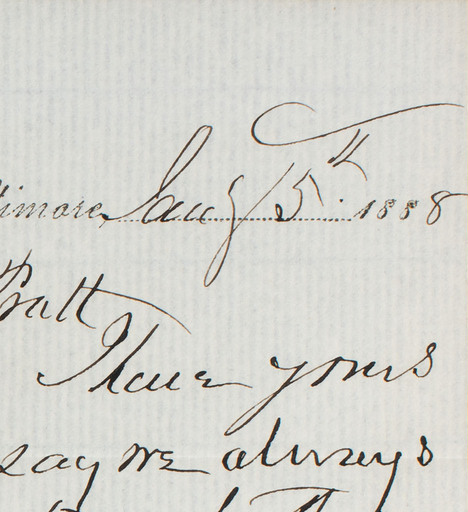 timore, Jany 15th 1888
Pratt
I have yours
say we always